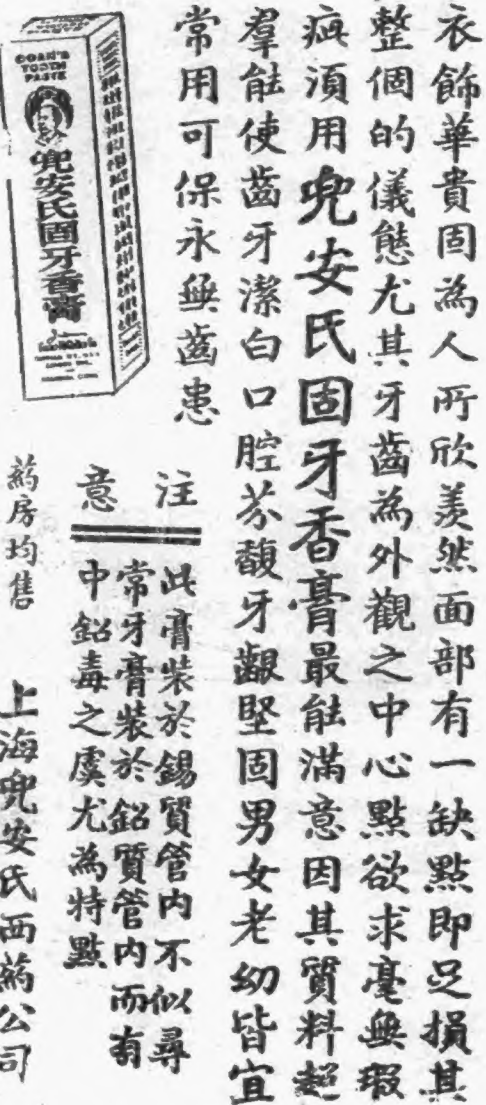 衣飾華貴固為人所欣羨然面部有一缺點即足損其
整個的儀態尤其牙齒為外觀之中心點欲求毫無瑕
疵須用兜安氏固牙香膏最能滿意因其質料超
羣能使齒牙潔白口腔芬馥牙齦堅固男女老幼皆宜
常用可保永無齒患
DOAN'S
TOOTH
PASTE
兜安氏固牙香膏
注意
此膏裝於錫質管内不似尋
常牙膏裝於鉛質管内而有
中鉛毒之虞尤為特點
藥房均售
上海兜安氏西藥公司